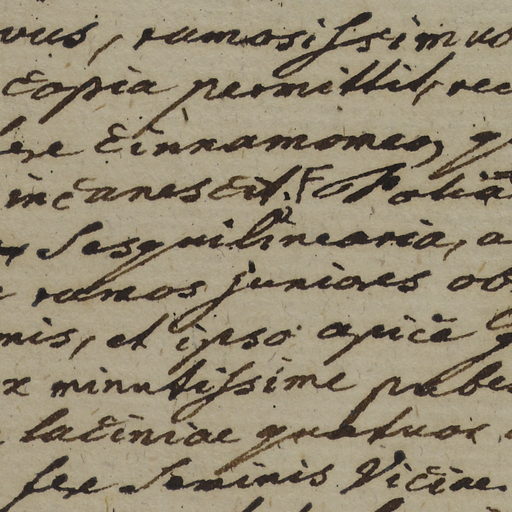 vus, ramosissimus
copia permittit, rec
fere Cinnamomeo, q
incanescit. Folia
Sesquilinearia, a
ramos juniores ob
mis, et ipso apice
x minutissime pube
laciniae quatuor
fere Seminis Viciae.